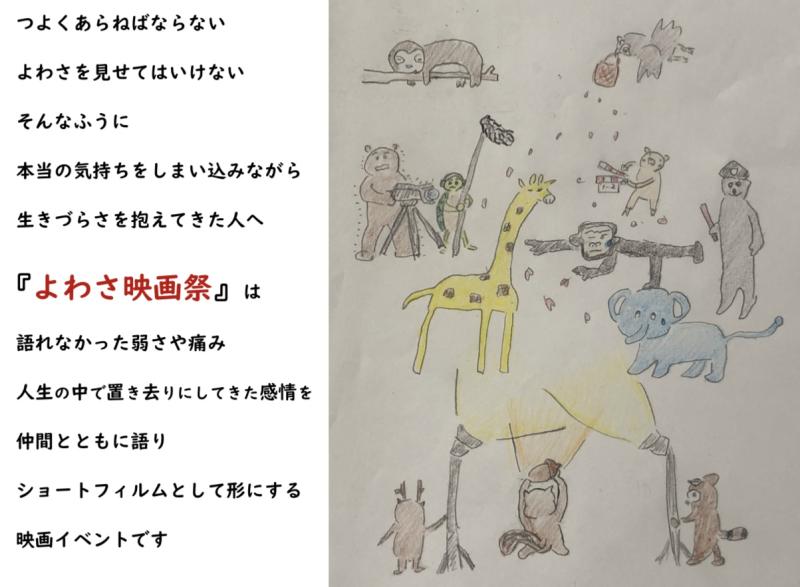 つよくあらねばならない
よわさを見せてはいけない
そんなふうに
本当の気持ちをしまい込みながら
生きづらさを抱えてきた人へ
『よわさ映画祭』は
語れなかった弱さや痛み
人生の中で置き去りにしてきた感情を
仲間とともに語り
ショートフィルムとして形にする
映画イベントです